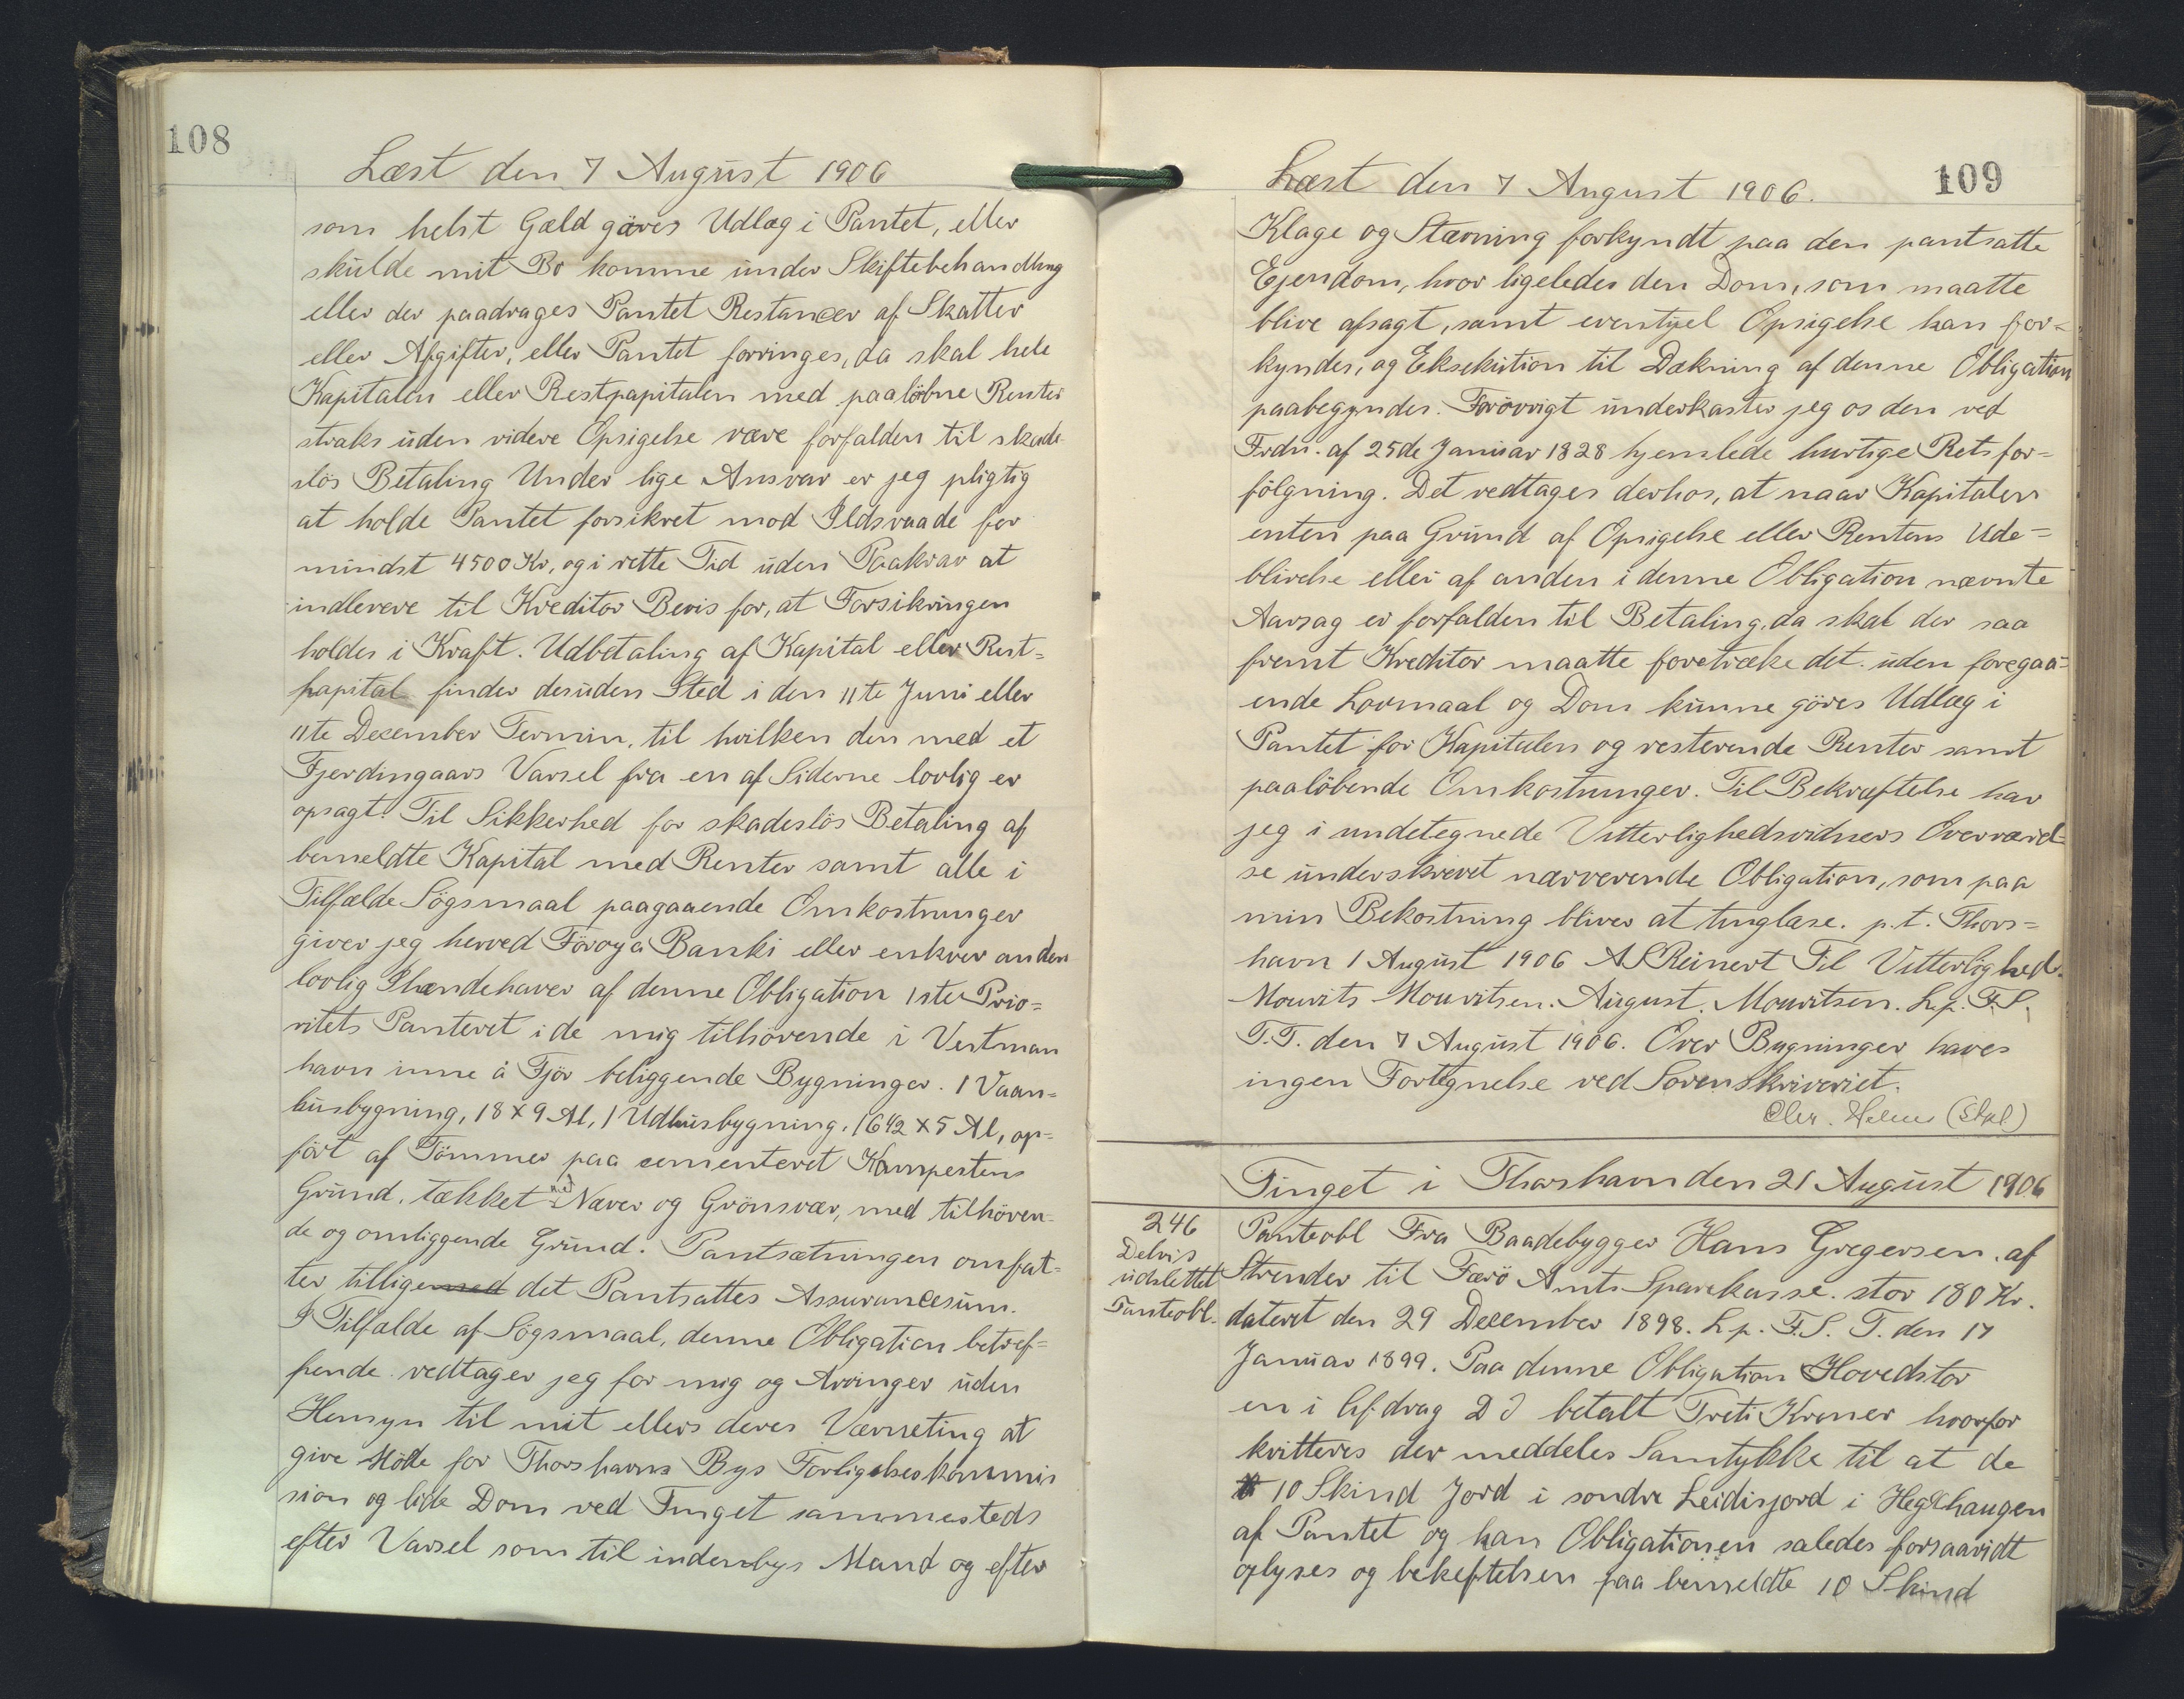 108
Læst den 7 August 1906
som helst Gæld gøres Udlæg i Pantet, eller
skulde mit Bo komme under Skiftebehandling
eller der paadrages Pantet Restancer af Skatter
eller Afgifter, eller Pantet forringes, da skal hele
Kapitalen eller Restpapitalen med paalöbne Renter
straks uden videre Opsigelse være forfalden til skade-
slös Betaling Under lige Ansvar er jeg pligtig
at holde Pantet forsikret mod Ildsvaade for
mindst 4500 Kr, og i rette Tid uden Paakrav at
indlevere til Kreditor Bevis for, at Forsikringen
holdes i Kraft. Udbetaling af Kapital eller Rest=
kapital finder desuden Sted i den 11te Juni eller
11te December Termin, til hvilken den med et
Fjerdingaars Varsel fra en af Siderne lovlig er
opsagt. Til Sikkerhed for skadeslös Betaling af
bemeldte Kapital med Renter samt alle i
Tilfælde Sögsmaal paagaaende Omkostninger
giver jeg herved Föroya Banki eller enhver anden
lovlig Ihændehaver af denne Obligation 1ste Prio=
ritets Panteret i de mig tilhörende i Vestman
havn inne á Fjör beliggende Bygninger. 1 Vaan=
husbygning, 18 x 9 Al, 1 Udhusbygning, 16 1/2 x 5 Al, op=
fört af Tömmer paa cementeret Kampestens
Grund, tækket med Næver og Grönsvær, med tilhören-
de og omliggende Grund. Pantsætningen omfat=
ter tilligemed det Pantsattes Assurancesum.
I Tilfælde af Sögsmaal, denne Obligation betref=
fende vedtager jeg for mig og Arvinger uden
Hensyn til mit ellers deres Værneting at
give Möde for Thorshavns Bys Forligelseskommis
sion og lide Dom ved Tinget sammesteds
efter Varsel som til indenbys Mand og efter
109
Læst den 7 August 1906.
Klage og Stævning forkyndt paa den pantsatte
Ejendom, hvor ligeledes den Dom, som maatte
blive afsagt, samt eventuel Opsigelse kan for=
kyndes, og Eksekution til Dækning af denne Obligation
paabegyndes. Forövrigt underkaster jeg os den ved
Frdn. af 25de Januar 1828 hjemlede hurtige Retsfor=
fölgning. Det vedtages derhos, at naar Kapitalen
enten paa Grund af Opsigelse eller Rentens Ude=
blivelse eller af anden i denne Obligation nævnte
Aarsag er forfalden til Betaling, da skal der saa
fremt Kreditor maatte foretrække det uden foregaa=
ende Lovmaal og Dom kunne göres Udlæg i
Pantet for Kapitalen og resterende Renter samt
paalöbende Omkostninger. Til Bekræftelse har
jeg i undetegnede Vitterlighedsvidners Overværel=
se underskrevet nærværende Obligation, som paa
min Bekostning bliver at tinglæse. p.t. Thors=
havn 1 August 1906 A S Reinert Til Vitterlighed.
Mourits Mouritsen. August. Mouritsen. L.p. F.S.
T.T. den 7 August 1906. Over Bygninger haves
ingen Fortegnelse ved Sorenskriveriet.
Chr. Helms (Skl)
Tinget i Thorshavn den 21 August 1906
246
Delvis
udslettet
Panteobl.
Panteobl Fra Baadebygger Hans Gregersen. af
Strender til Færö Amts Sparekasse. stor 180 Kr.
dateret den 29 December 1898. L.p. F.S. T. den 17
Januar 1899. Paa denne Obligation Hovedstor
en i Afdrag D D betalt Treti Kroner hvorfor
kvitteres der meddeles Samtykke til at de
10 Skind Jord i sondre Leidisjord i Heglhaugen
af Pantet og kan Obligationen saledes forsaavidt
oplyses og bekeftelsen paa bemeldte 10 Skind